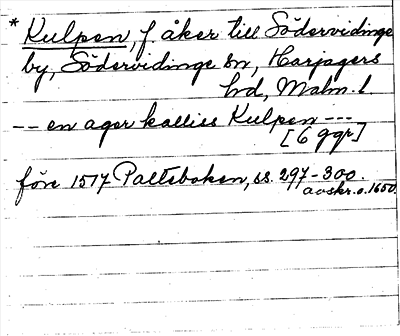 * Kulpen, f åker till Södervidinge
by, Södervidinge sn, Harjagers
hd, Malm. l
-- en ager kalliss Kulpen ---
[6 ggr.]
före 1517 Palteboken, ss. 297-300.
avskr. o. 1650